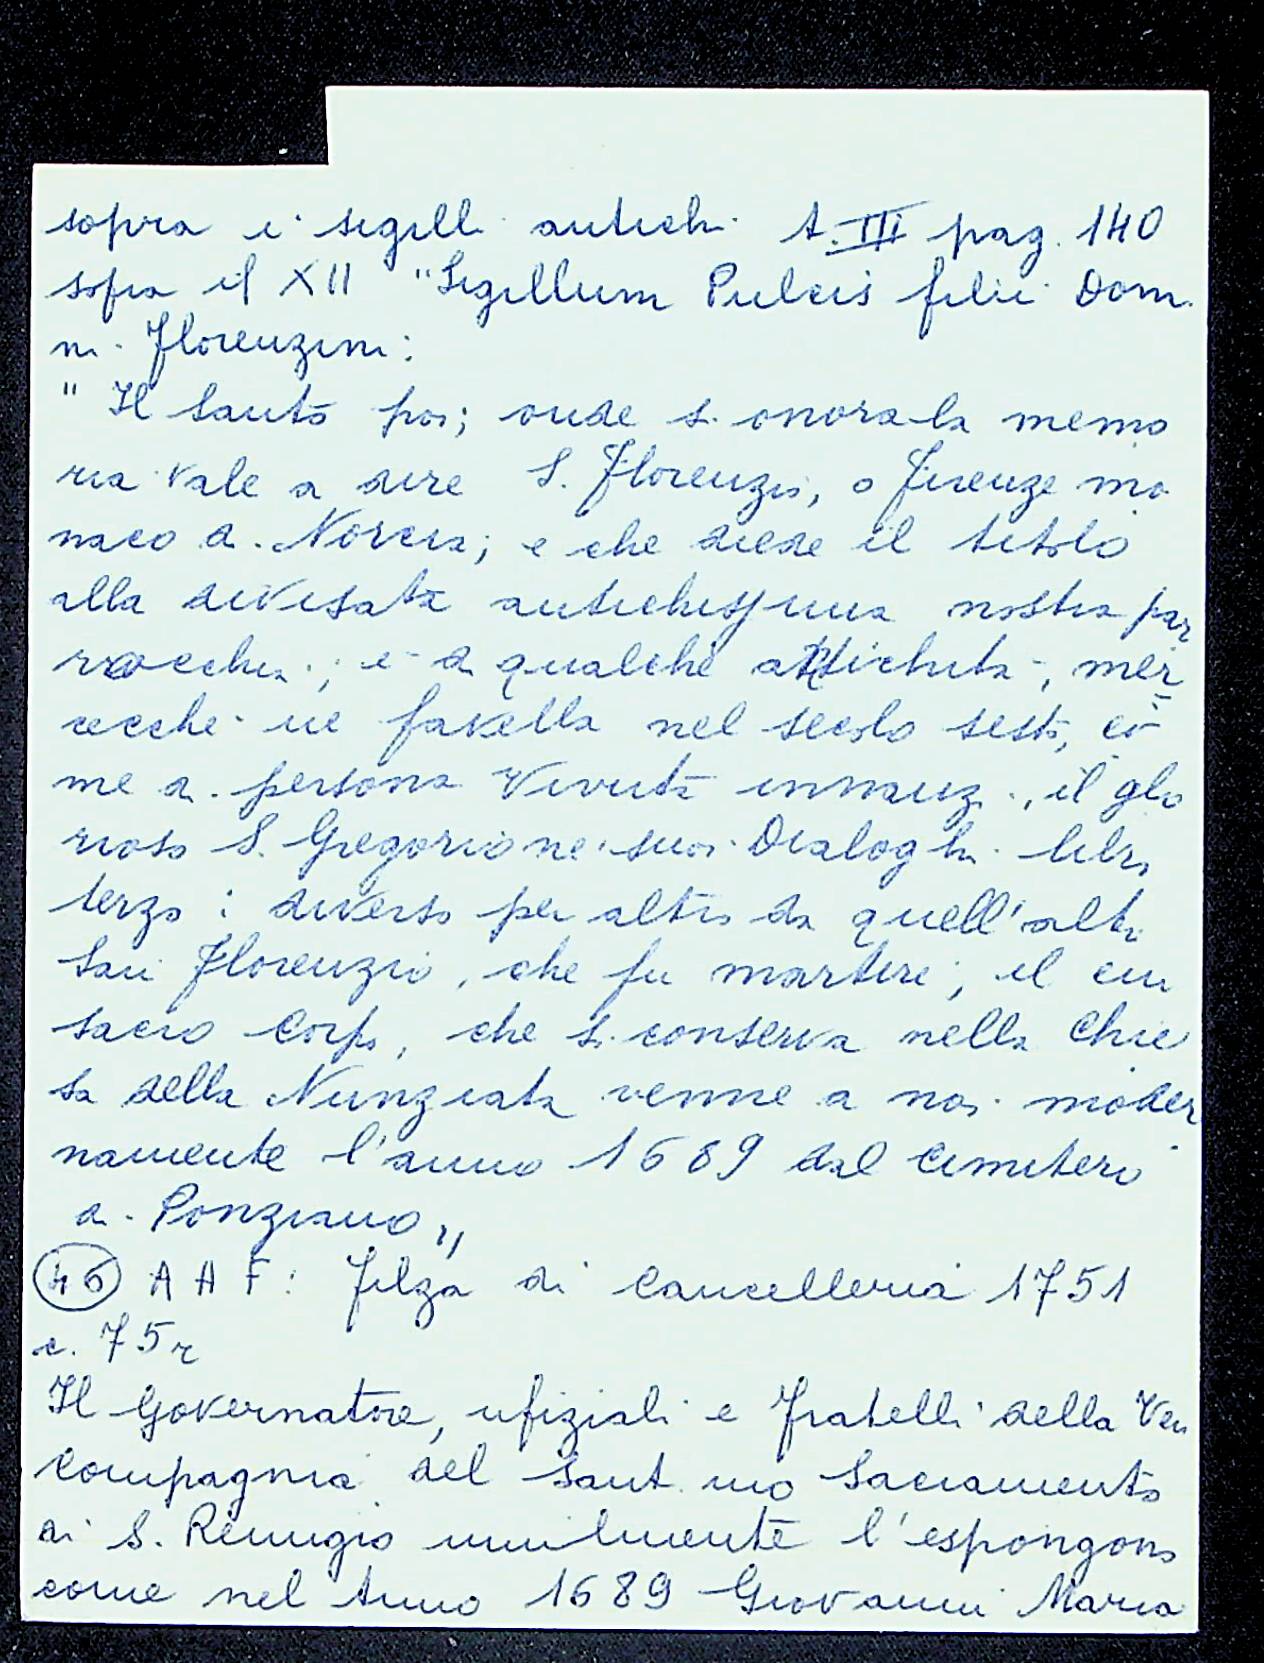 sopra i sigilli antichi t. III pag. 140
sopra il XII "Sigillum Pulcis filii Dom
ni Florenzini:
" Il Santo poi; onde si onora la memo
ria vale a dire S. Florenzio, o firenze mo
naco di Norcia; e che diede il titolo
alla divisata antichissima nostra par
rocchia; e di qualche antichità, mer=
cecchè ne favella nel secolo sesto, co
me di persona vivuta innanzi, il glo
rioso S. Gregorio ne' suoi Dialoghi libro
terzo: diverso per altro da quell'altro
San Florenzio, che fu martire, il cui
sacro corpo, che si conserva nella Chie
sa della Nunziata venne a noi moder
namente l'anno 1689 dal Cimiterio
di Ponziano"
46 A A F: Filza di Cancelleria 1751
c. 75r
Il Governatore, ufiziali e Fratelli della Ven
Compagnia del Sant.mo Sacramento
di S. Remigio umilmente l'espongono
come nel Anno 1689 Giovanni Maria